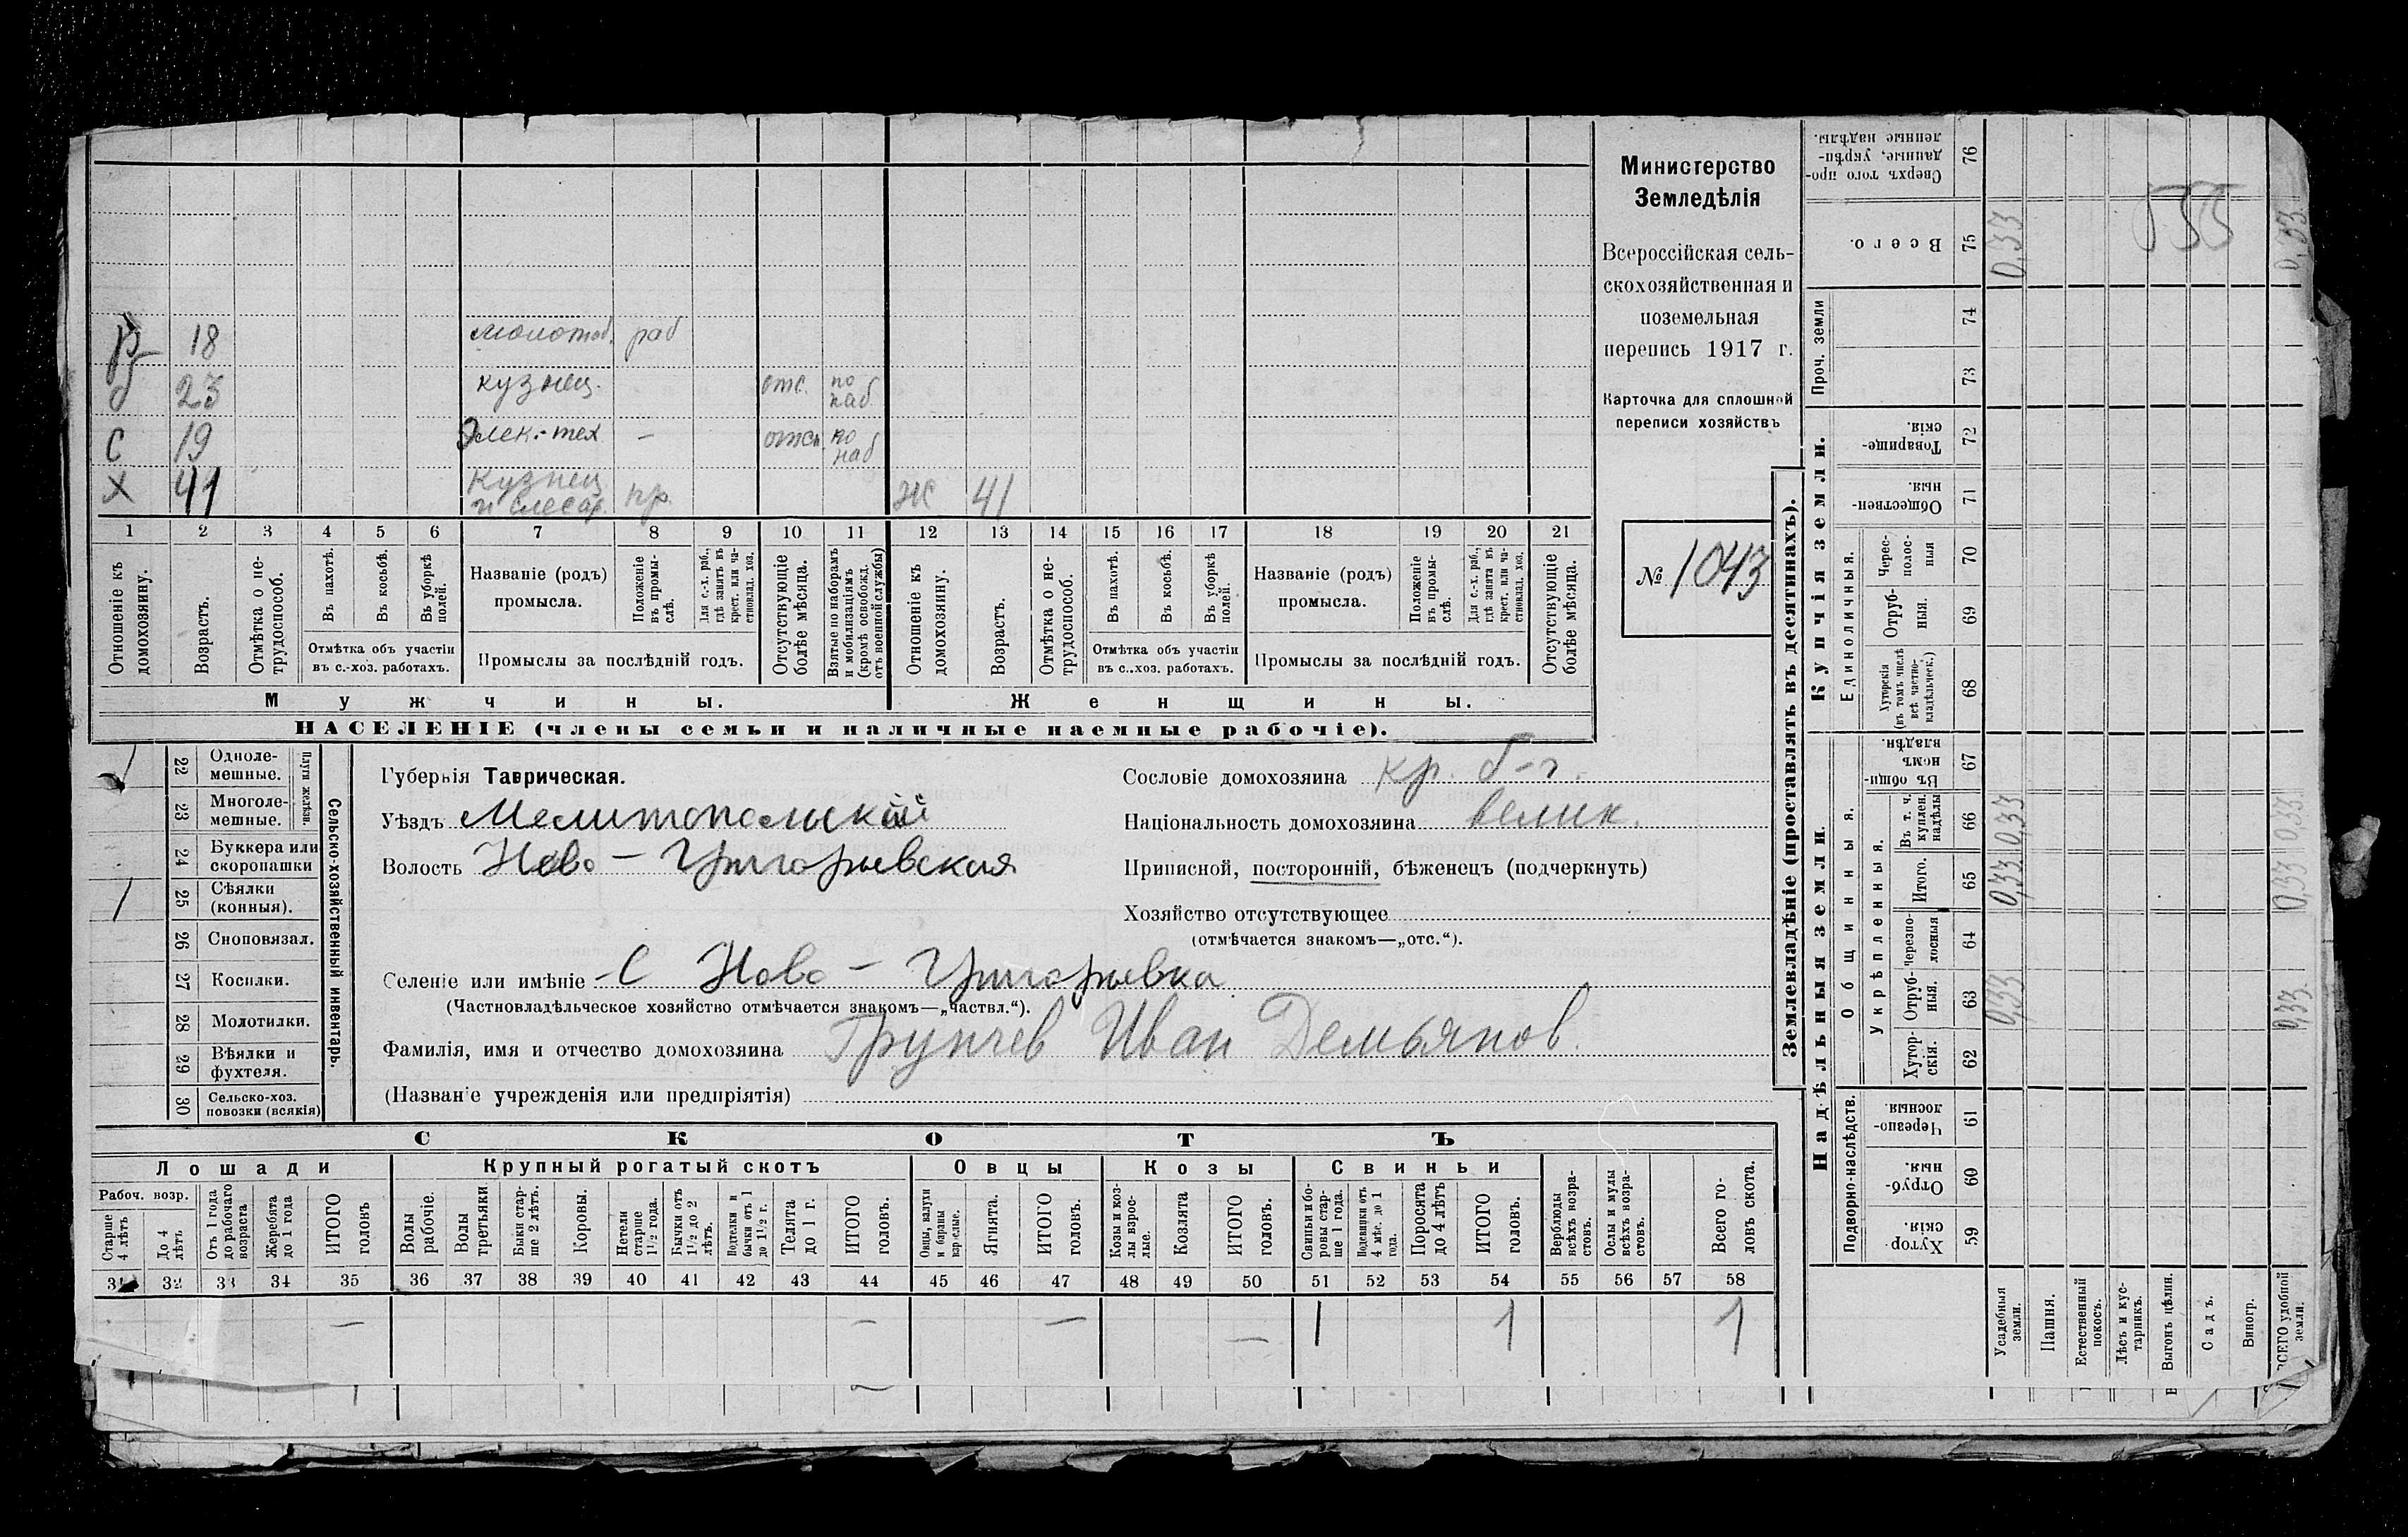 Министерство
Земледѣлія
Всероссійская сель-
скохозяйственная и
поземельная
перепись 1917 г.
Карточка для сплошной
переписи хозяйствъ
№ 1043
18 молотоб. раб
23 кузнец. отс. по наб
С 19 Элек.-тех — отсп. по наб
Х 41 Кузнец и слесар. пр. Ж 41
1 2 3 4 5 6 7 8 9 10 11 12 13 14 15 16 17 18 19 20 21
Отношеніе къ домохозяину.
Возрастъ.
Отмѣтка о не-трудоспособ.
Въ пахотѣ.
Въ косьбѣ.
Въ уборкѣ полей.
Отмѣтка объ участіи въ с.-хоз. работахъ.
Названіе (родъ) промысла.
Положеніе въ промы-слѣ.
Для с.-х. раб., гдѣ занятъ въ крест. или ча-стновлад. хоз.
Промыслы за послѣдній годъ.
Отсутствующіе болѣе мѣсяца.
Взятые по наборамъ и мобилизаціямъ (кромѣ освобожд. отъ военной службы)
Отношеніе къ домохозяину.
Возрастъ.
Отмѣтка о не-трудоспособ.
Въ пахотѣ.
Въ косьбѣ.
Въ уборкѣ полей.
Отмѣтка объ участіи въ с..хоз. работахъ.
Названіе (родъ) промысла.
Положеніе въ промы-слѣ.
Для с.-х. раб., гдѣ занята въ крест. или ча-стновлад. хоз.
Промыслы за послѣдній годъ.
Отсутствующіе болѣе мѣсяца.
Мужчины. Женщины.
НАСЕЛЕНІЕ (члены семьи и наличные наемные рабочіе).
22 Одноле-мешные.
23 Многоле-мешные.
Плуги желѣзн.
24 Буккера или скоропашки
1 25 Сѣялки (конныя).
26 Сноповязал.
27 Косилки.
28 Молотилки.
29 Вѣялки и фухтеля.
30 Сельско-хоз. повозки (всякія)
Сельско-хозяйственный инвентарь.
Губернія Таврическая.
Уѣздъ Мелитопольский
Волость Ново - Григорьевская
Сословіе домохозяина кр. б-г.
Національность домохозяина велик.
Приписной, посторонній, бѣженецъ (подчеркнуть)
Хозяйство отсутствующее
(отмѣчается знакомъ—„отс.“).
Селеніе или имѣніе С Ново - Григорьевка
(Частновладѣльческое хозяйство отмѣчается знакомъ—„частвл.“).
Фамилія, имя и отчество домохозяина Грунчев Иван Демьянов.
(Названіе учрежденія или предпріятія)
СКОТЪ
Лошади Крупный рогатый скотъ Овцы Козы Свиньи
Рабоч. возр.
Старше 4 лѣтъ
До 4 лѣтъ
Отъ 1 года до рабочаго возраста
Жеребята до 1 года
ИТОГО головъ
Волы рабочіе.
Волы третьяки
Быки стар-ше 2 лѣтъ.
Коровы.
Нетели старше 1½ года.
Бычки отъ 1½ до 2 лѣтъ.
Подтелки и бычки отъ 1 до 1½ г.
Телята до 1 г.
ИТОГО головъ.
Овцы, валухи и бараны взрослые.
Ягнята.
ИТОГО головъ.
Козы и коз-лы взрос-лые.
Козлята
ИТОГО головъ.
Свиньи бо-ровы стар-ше 1 года.
Подсвинки отъ 4 мѣс. до 1 года.
Поросята до 4 лѣтъ
ИТОГО головъ.
Верблюды всѣхъ возра-стовъ.
Ослы и мулы всѣхъ возра-стовъ.
Всего го-ловъ скота.
32 33 34 35 36 37 38 39 40 41 42 43 44 45 46 47 48 49 50 51 52 53 54 55 56 57 58
— — — — 1 1 1
Землевладѣніе (проставлять въ десятинахъ).
Купчія земли.
Надѣльныя земли.
Сверхъ того про-данные, укрѣп-ленные надѣлы. 76
Всего. 75 0,33 0,33
555
Проч. земли 74 73
Товарище-скія. 72
Обществен-ныя. 71
Единоличныя.
Черес-полос-ныя 70
Отруб-ныя. 69
Хуторскія (въ томъ числѣ всѣ частно-владѣльческ.) 68
Общинныя.
Въ общин-номъ владѣн. 67
Укрѣпленныя.
Въ т. ч. куплен. надѣлы 66 0,33 0,33
Итого. 65 0,33 0,33
Черезпо-лосныя 64
Отруб-ныя. 63 0,33 0,33
Хутор-скія. 62
Подворно-наслѣдств.
Черезпо-лосныя. 61
Отруб-ныя. 60
Хутор-скія. 59
Усадебныя земли.
Пашня.
Естественный покосъ.
Лѣсъ и кус-тарникъ.
Выгонъ цѣлин.
Садъ.
Виногр.
ВСЕГО удобной земли.